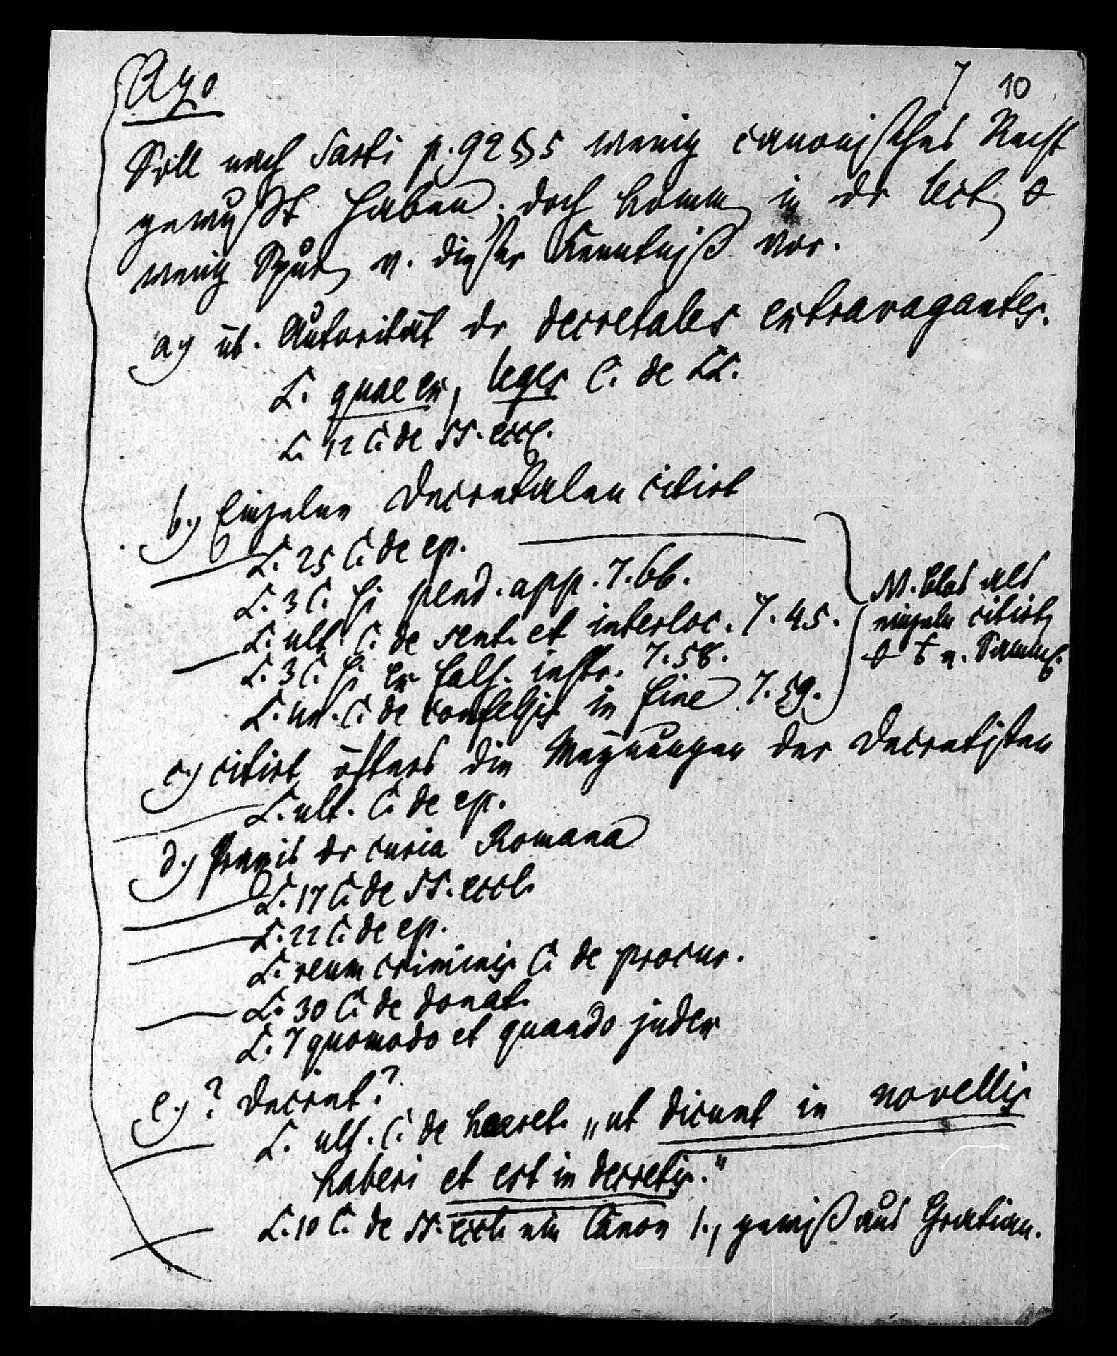 Azo
7 10
Soll nach Sarti p. 92 § 5 wenig canonisches Recht
gewußt haben; doch komm in dr lect
wenig Spur v. dieser Kenntniß vor.
a) üb. Autorität dr decretales extravagantes.
L. quae ex, leges C. de LL.
L. 12 C. de SS. eccl.
b.) Einzelne Decretalen citirt
L. 25 C. de ep.
L. 3 C. si pend. app. 7. 66.
L. ult. C. de sent. et interloc. 7. 45.
L. 3 C. si ex fals. instr. 7. 58.
L. un. C. de confessis in fine 7. 59.
N. blos als
einzeln citirt
v. Samml.
c.) citirt öfters die Meynungen der Decretisten
L. ult. C. de ep.
d.) Praxis dr curia Romana
L. 17 C. de SS. eccl.
L. 22 C. de ep.
L. reum criminis C. de procur.
L. 30 C. de donat.
L. 7 quomodo et quando judex
e.) ? Decret?
L. ult. C. de haeret. „ut dicunt in novellis
haberi et est in decretis."
L. 10 C. de SS. eccl. ein Canon 1., gewiß aus Gratian.